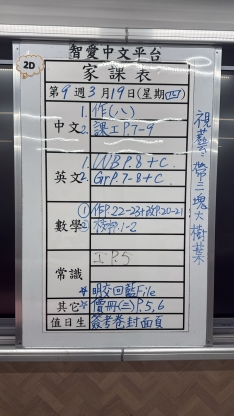 2D
智愛中文平台
家課表
第9週3月19日(星期四)
中文
1. 作(八)
2. 課工P.7-9
英文
1. WB P.8 + C.
2. Gr P.7-8 + C.
數學
① 作P.22-23+改P.20-21
② 1-2
常識
工P.5
*明交回藍File
其它
*價冊(三)P.5,6
值日生
簽考卷封面頁
視藝:帶三塊大樹葉